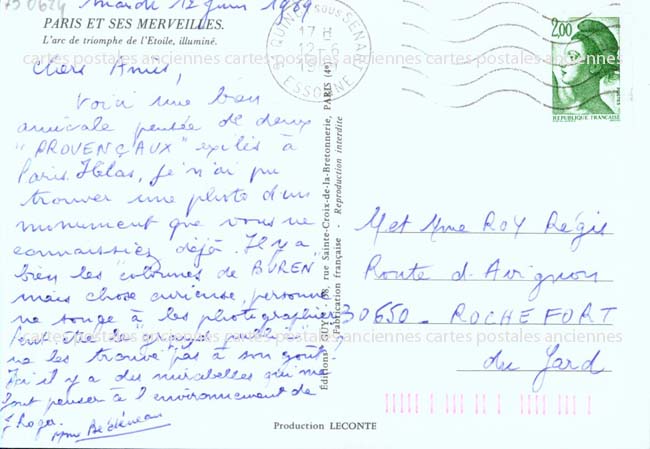 750624
mardi 12 juin 1989
PARIS ET SES MERVEILLES.
L'arc de triomphe de l'Etoile, illuminé.
Chers Amis,
Voici une bien
amicale pensée de deux
"PROVENÇAUX" exilés à
Paris. Hélas, je n'ai pu
trouver une photo d'un
monument que vous ne
connaissiez déjà. Il y a
bien les "colonnes de BUREN"
mais chose curieuse, personne
ne songe à les photographier
Peut être les gens
ne les trouve pas à son goût.
Ici il y a des mirabelles qui me
font penser à l'environnement de
QUINCY SOUS SENART
17 H
12-6
19
ESSONNE
2,00
REPUBLIQUE FRANÇAISE
Editions "GUY" - 18, rue Sainte-Croix-de-la-Bretonnerie, PARIS (4e)
Fabrication française - Reproduction interdite
M et Mme ROY Régis
Route d'Avignon
30650 - ROCHEFORT
du Gard
Production LECONTE
cartes postales anciennes cartes postales anciennes cartes postales anciennes
cartes postales anciennes cartes postales anciennes cartes postales anciennes